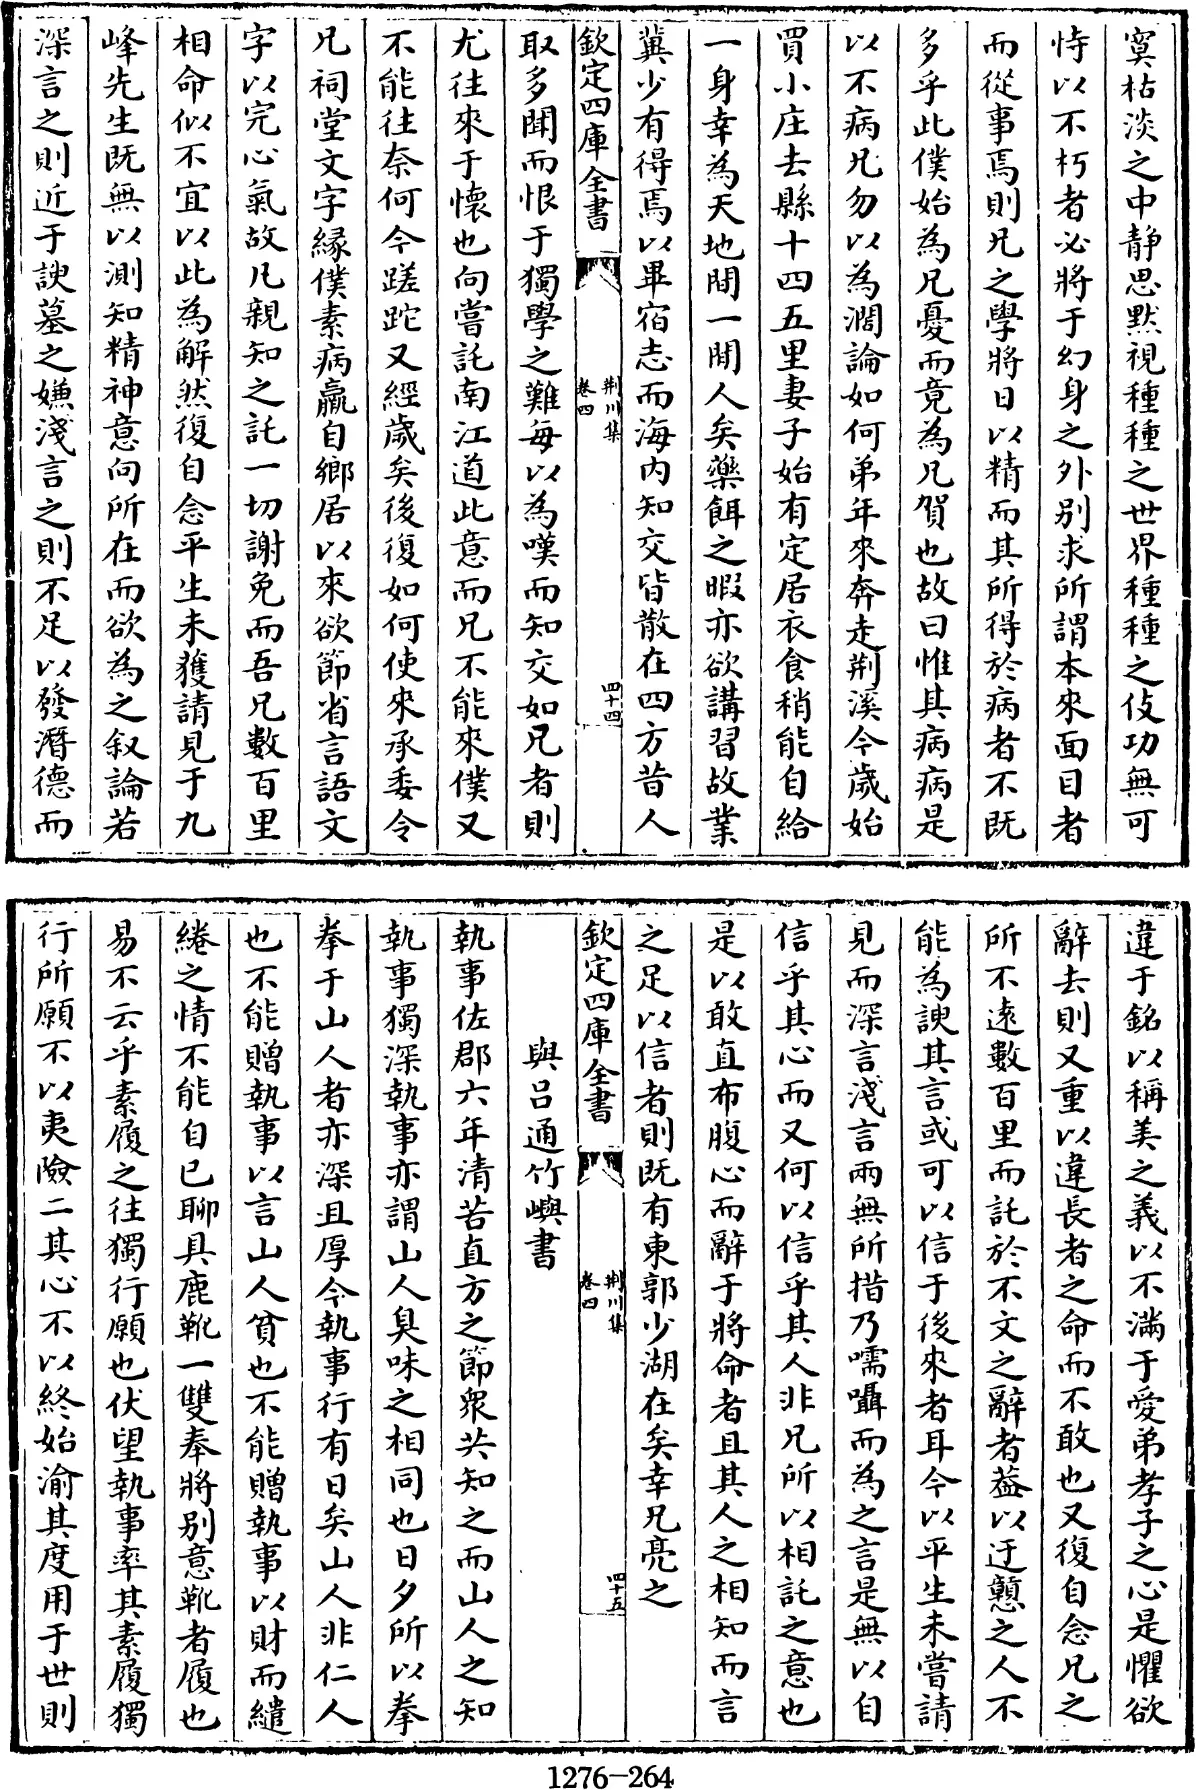 寞枯淡之中靜思默視種種之世界種種之伎功無可
恃以不朽者必將于幻身之外別求所謂本來面目者
而從事焉則兄之學將日以精而其所得於病者不既
多乎此僕始為兄憂而竟為兄賀也故曰惟其病病是
以不病兄勿以為濶論如何弟年來奔走荆溪今歲始
買小庄去縣十四五里妻子始有定居衣食稍能自給
一身幸為天地間一閒人矣藥餌之暇亦欲講習故業
冀少有得焉以畢宿志而海内知交皆散在四方昔人
欽定四庫全書
荆川集
卷四
四十四
取多聞而恨于獨學之難每以為嘆而知交如兄者則
尤往來于懷也向嘗託南江道此意而兄不能來僕又
不能往奈何今蹉跎又經歲矣後復如何使來承委令
兄祠堂文字緣僕素病羸自鄉居以來欲節省言語文
字以完心氣故凡親知之託一切謝免而吾兄數百里
相命似不宜以此為解然復自念平生未獲請見于九
峰先生既無以測知精神意向所在而欲為之叙論若
深言之則近于諛墓之嫌淺言之則不足以發潛德而
違于銘以稱美之義以不滿于愛弟孝子之心是懼欲
辭去則又重以違長者之命而不敢也又復自念兄之
所不遠數百里而託於不文之辭者葢以迂戅之人不
能為諛其言或可以信于後來者耳今以平生未嘗請
見而深言淺言兩無所措乃嚅囁而為之言是無以自
信乎其心而又何以信乎其人非兄所以相託之意也
是以敢直布腹心而辭于將命者且其人之相知而言
之足以信者則既有東郭少湖在矣幸兄亮之
欽定四庫全書
荆川集
卷四
四十五
與呂通竹嶼書
執事佐郡六年清苦直方之節衆共知之而山人之知
執事獨深執事亦謂山人臭味之相同也日夕所以拳
拳于山人者亦深且厚今執事行有日矣山人非仁人
也不能贈執事以言山人貧也不能贈執事以財而繾
綣之情不能自已聊具鹿靴一雙奉將別意靴者履也
易不云乎素履之往獨行願也伏望執事率其素履獨
行所願不以夷險二其心不以終始渝其度用于世則
1276-264